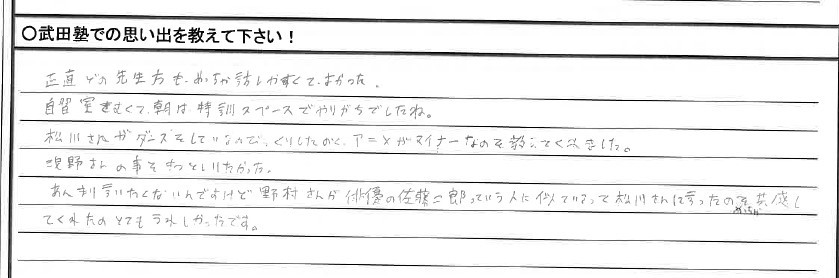 ○武田塾での思い出を教えて下さい！
正直どの先生方も、めちゃ話しやすくて、よかった。
自習室さむくて、朝は特訓スペースでやりがちでしたね。
松川さんがダンスをしているので、アニメがマイナーなのを教えてくれました。
さんの事をもっとしりたかった。
あんまり言いたくないんですけど野村さんが俳優の佐藤二郎っていう人に似ているって松川さんに言ったのをめっちゃ共感し
てくれたのとてもうれしかったです。